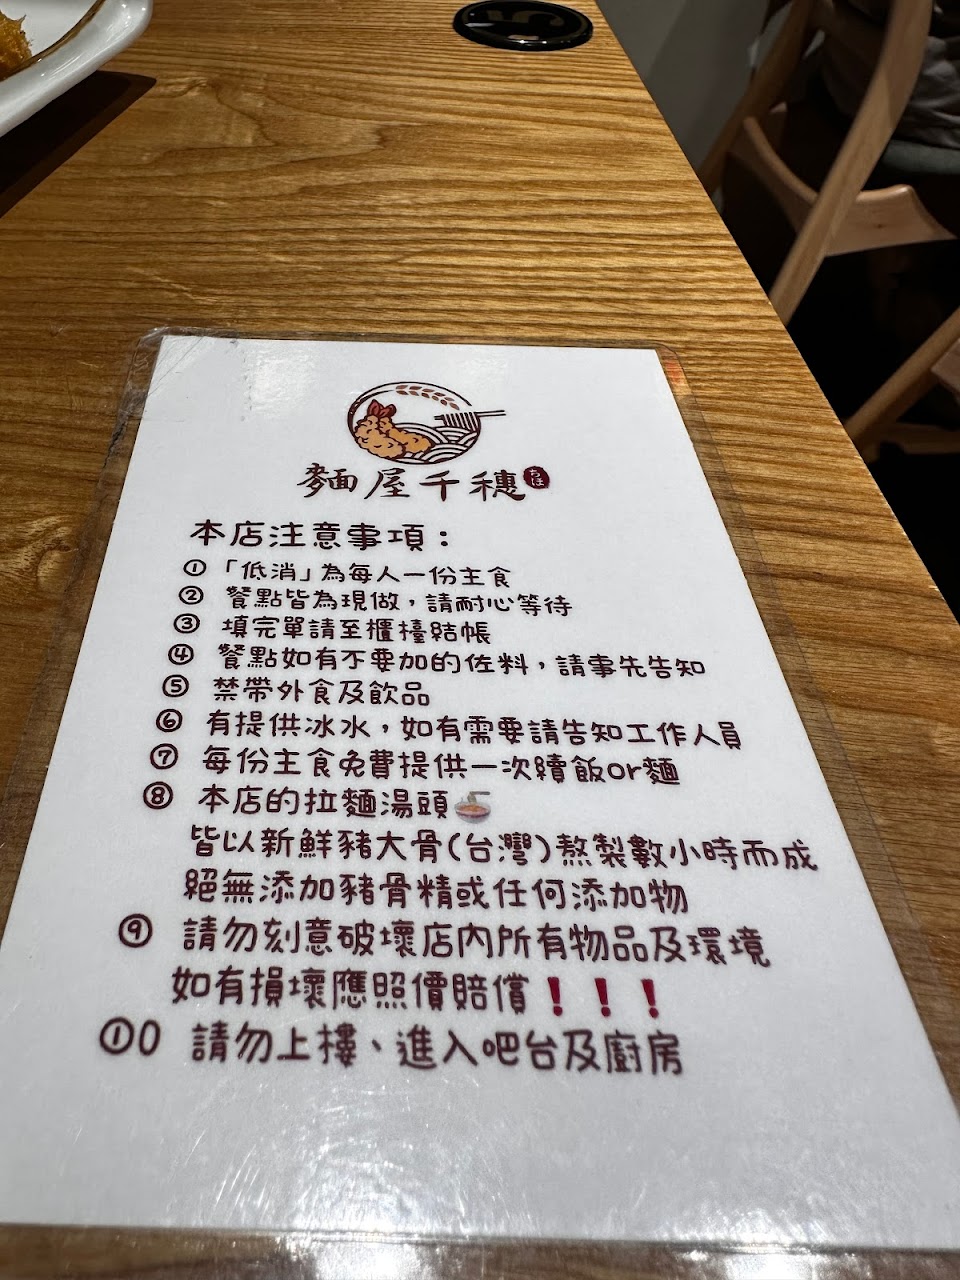 麵屋千穗 ちほ
本店注意事項：
① 「低消」為每人一份主食
② 餐點皆為現做，請耐心等待
③ 填完單請至櫃檯結帳
④ 餐點如有不要加的佐料，請事先告知
⑤ 禁帶外食及飲品
⑥ 有提供冰水，如有需要請告知工作人員
⑦ 每份主食免費提供一次續飯or麵
⑧ 本店的拉麵湯頭🍜
皆以新鮮豬大骨(台灣)熬製數小時而成
絕無添加豬骨精或任何添加物
⑨ 請勿刻意破壞店內所有物品及環境
如有損壞應照價賠償❗❗❗
①0 請勿上樓、進入吧台及廚房